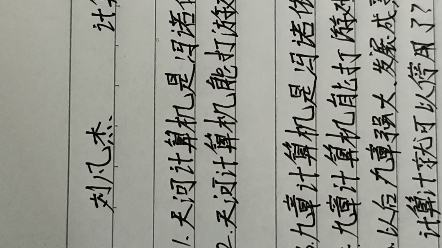 刘凡杰 计算
1.天河计算机是冯诺依
2.天河计算机能打游
九章计算机是冯诺依
九章计算机能打游
以后九章强大、发展成
计算计就可以停用了?